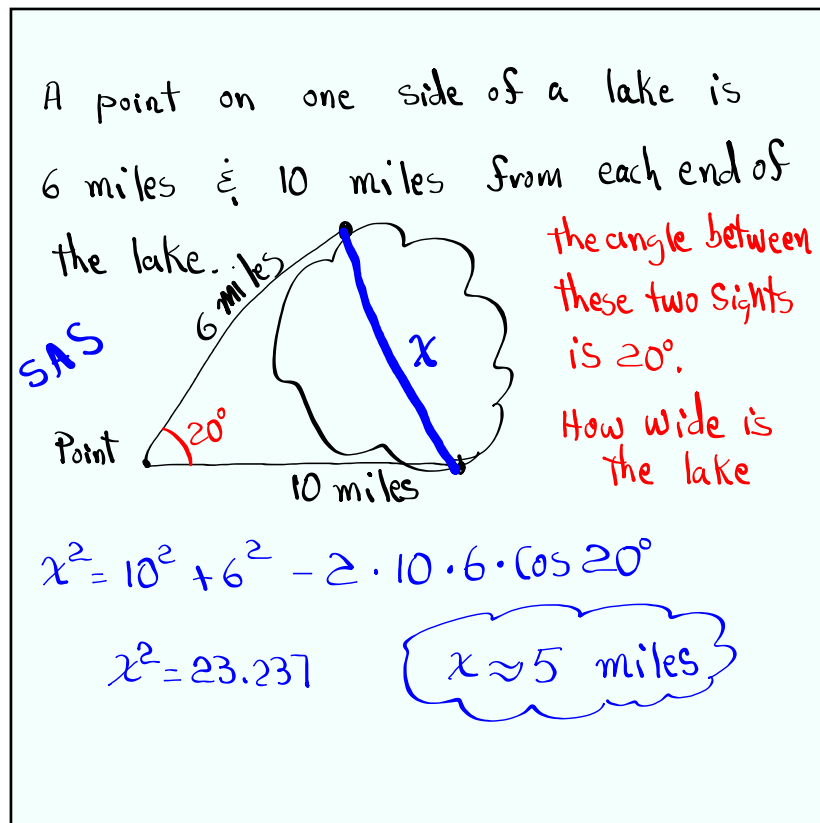 A point on one side of a lake is
6 miles & 10 miles from each end of
the lake.
the angle between
these two sights
is 20°.
How wide is
the lake
SAS
6 miles
x
20°
Point
10 miles
x² = 10² + 6² - 2 · 10 · 6 · Cos 20°
x² = 23.237
x ≈ 5 miles